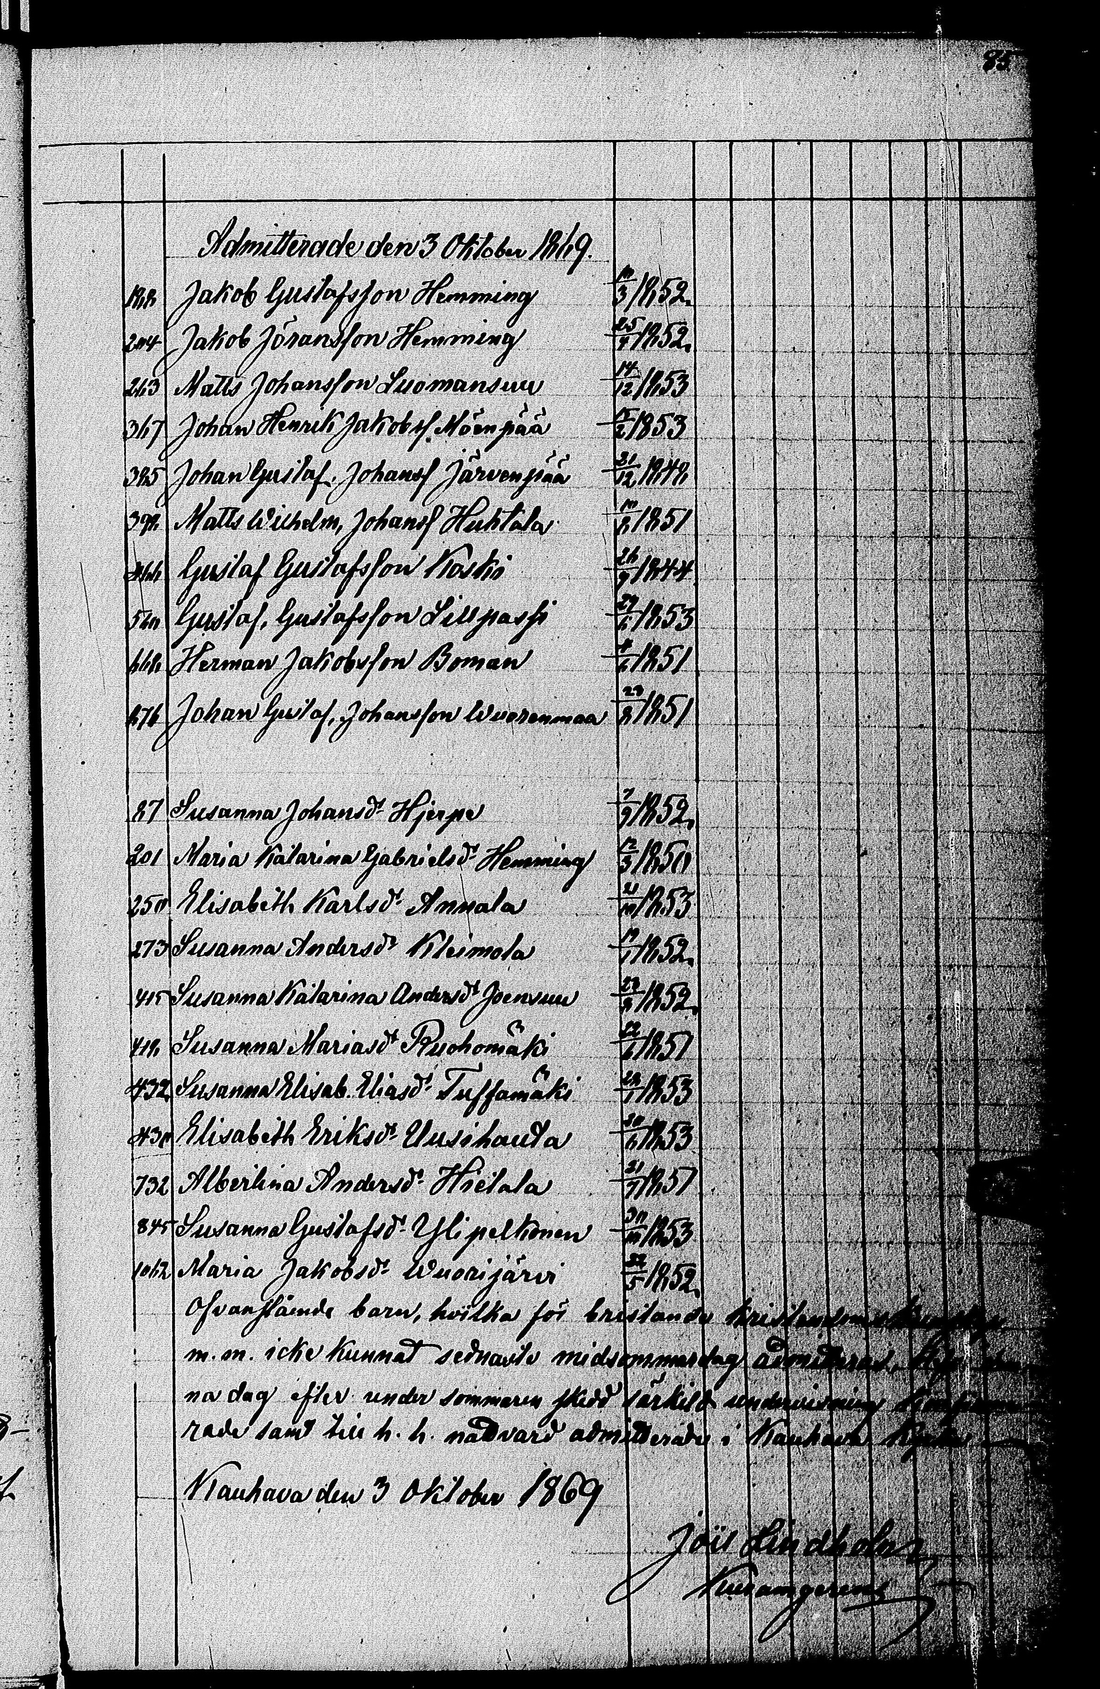 85
Admitterade den 3 Oktober 1869.
188 Jakob Gustafsson Hemming 10/3 1852.
204 Jakob Jöransson Hemming 25/4 1852.
263 Matts Johansson Luomansuu 14/12 1853
367 Johan Henrik Jakobss. Mäenpää 15/2 1853
385 Johan Gustaf, Johanss Järvenpää 21/12 1848
398 Matts Wilhelm, Johanss Huhtala 10/8 1851
466 Gustaf Gustafsson Koski 26/9 1844
560 Gustaf, Gustafsson Lillpassi 29/6 1853
668 Herman Jakobsson Boman 1851
876 Johan Gustaf, Johansson Wuorenmaa 23/8 1851
87 Susanna Johansdr Hjerpe 7/9 1852.
201 Maria Katarina Gabrielsdr Hemming 12/3 1850
250 Elisabeth Karlsdr Annala 21/10 1853
273 Susanna Andersdr Kleimola 19/1 1852.
415 Susanna Katarina Andersdr Joensuu 23/8 1852.
418 Susanna Mariasdr Ruohomäki 22/6 1851
432 Susanna Elisab. Eliasdr Tussamäki 28/1 1853
430 Elisabeth Eriksdr Uusihauta 20/6 1853
732 Albertina Andersdr Hietala 21/7 1851
845 Susanna Gustafsdr Ylipelkonen 30/10 1853
1062 Maria Jakobsdr Wuorijärvi 22/5 1852.
Ofvanstående barn, hvilka för bristande kristendomskunskap
m.m. icke kunnat sednaste midsommardag admitteras,
na dag efter under sommaren skedd särkild undervisning
rade samt till h. h. nattvard admitterade i Kauhava Kyrka
Kauhava den 3 Oktober 1869
Lindholm